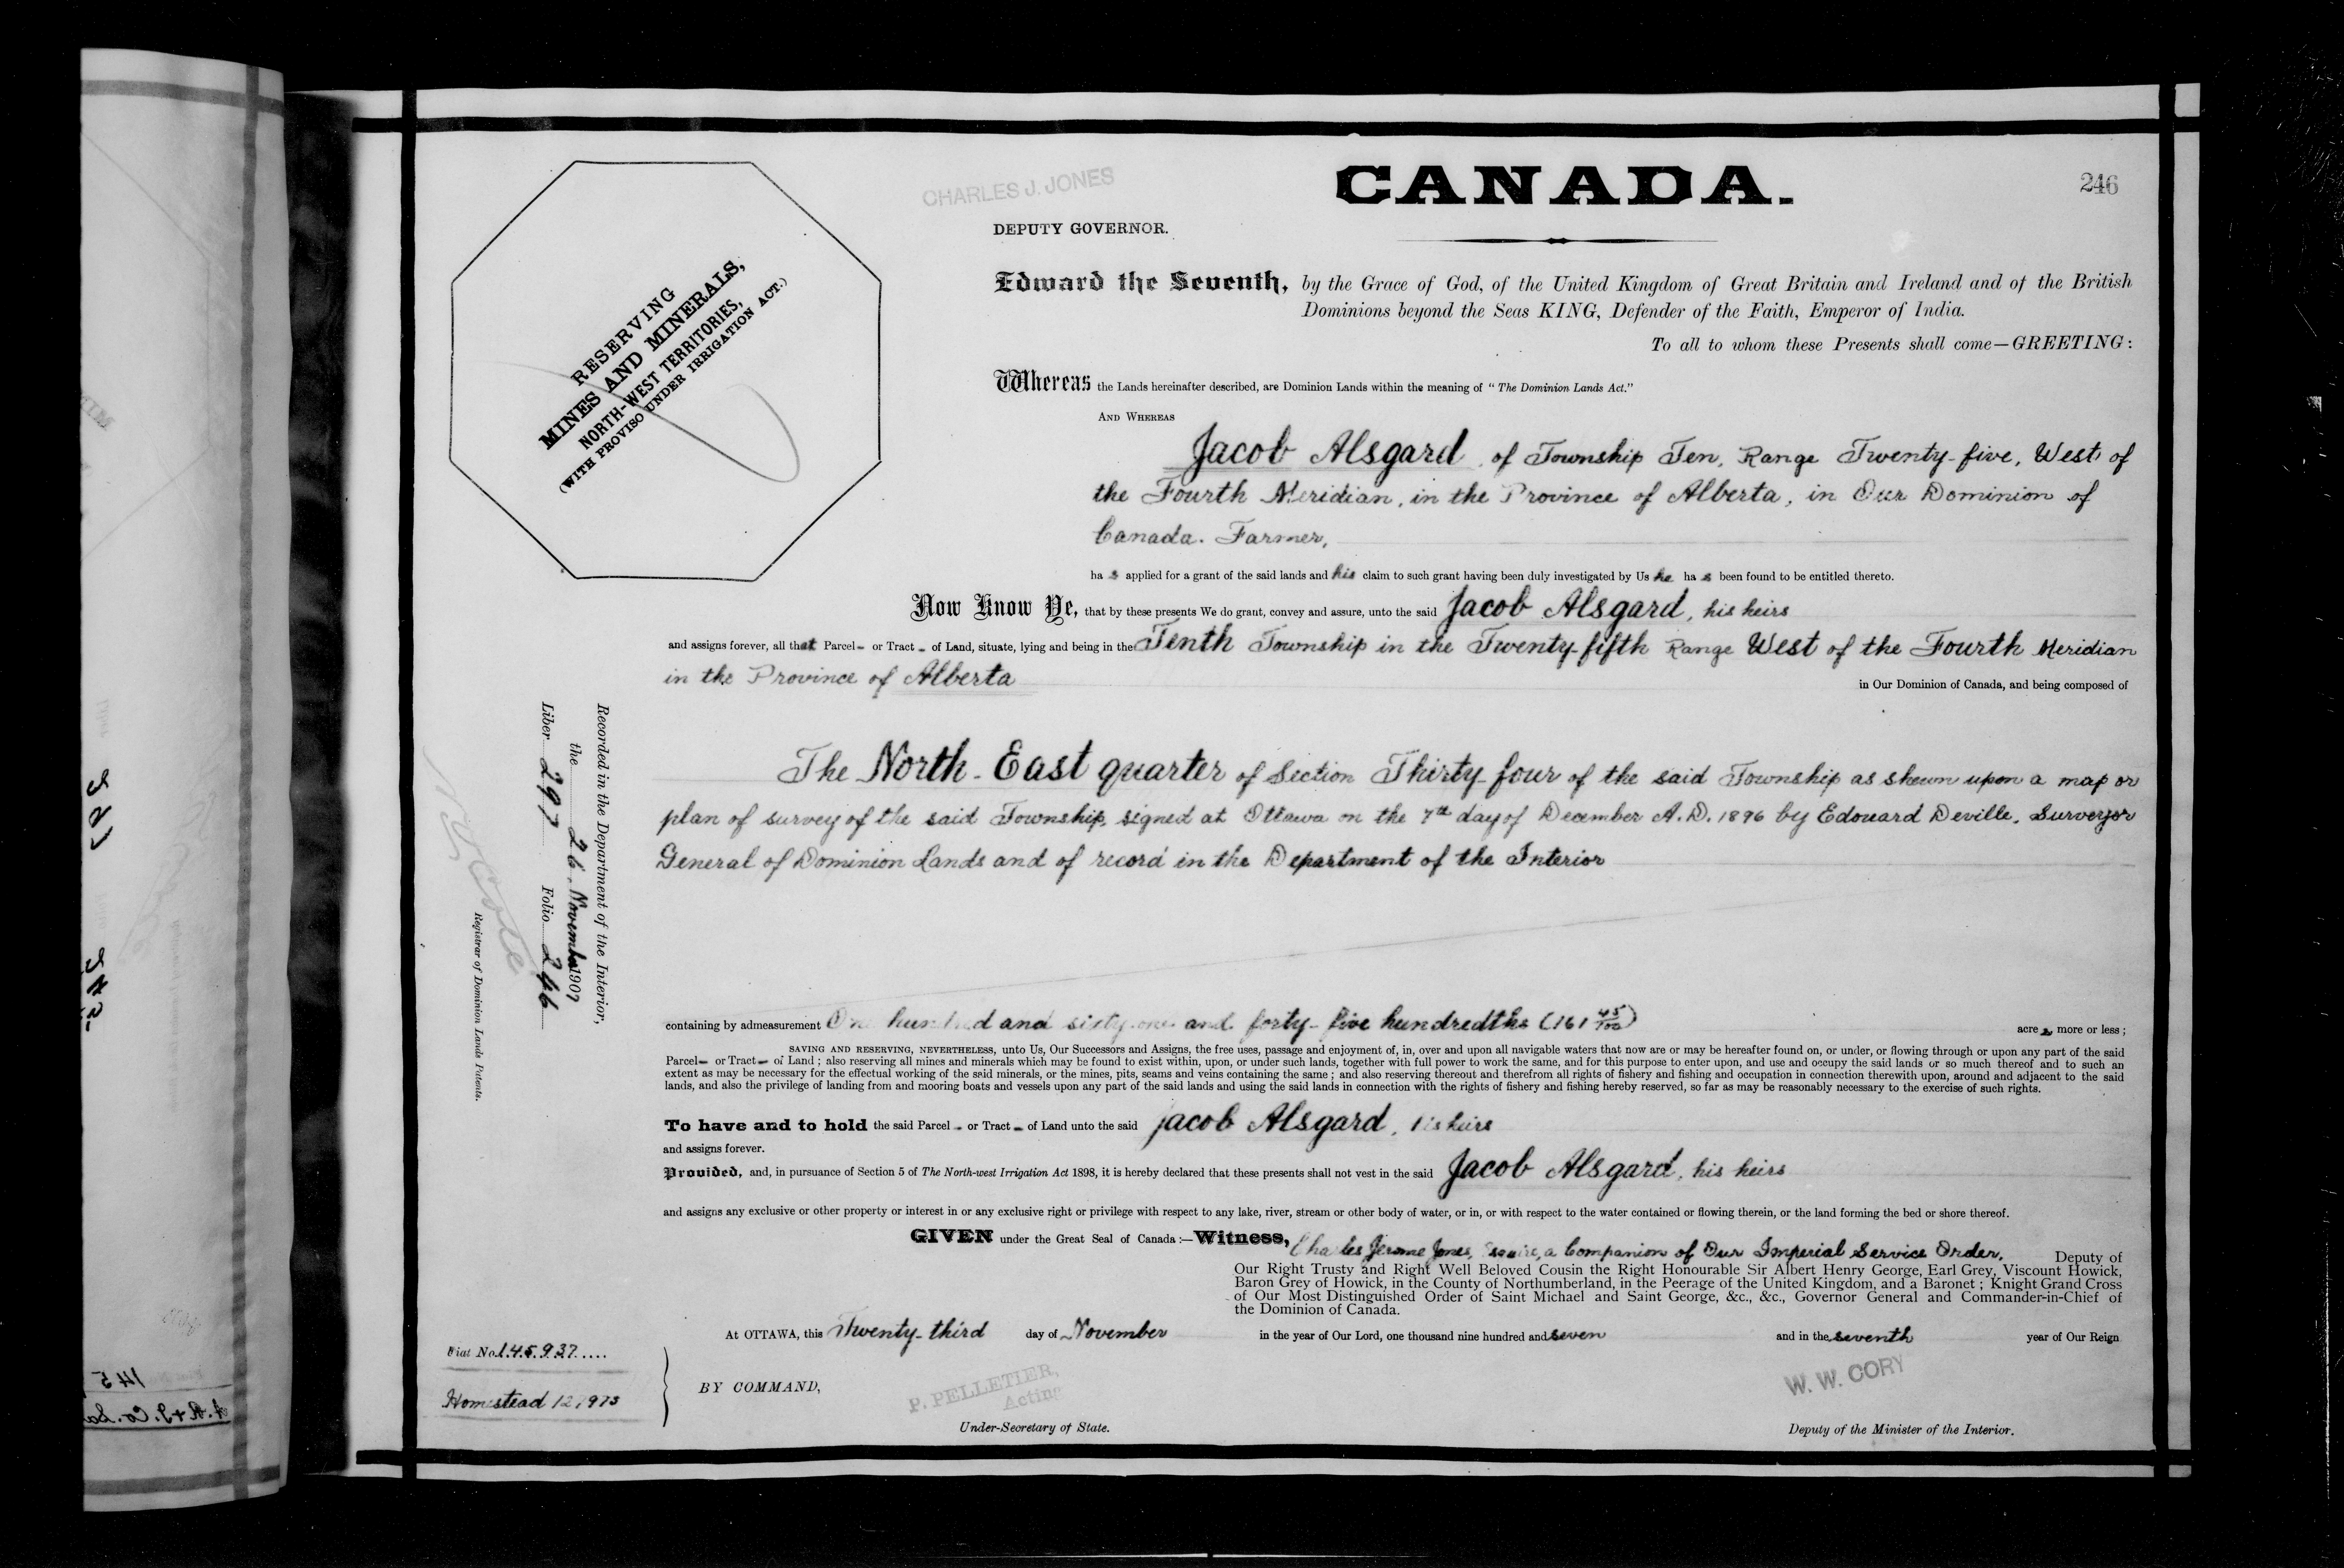 CHARLES J. JONES
CANADA.
246
DEPUTY GOVERNOR.
RESERVING
MINES AND MINERALS,
NORTH-WEST TERRITORIES,
(WITH PROVISO UNDER IRRIGATION ACT.)
Edward the Seventh, by the Grace of God, of the United Kingdom of Great Britain and Ireland and of the British
Dominions beyond the Seas KING, Defender of the Faith, Emperor of India.
To all to whom these Presents shall come—GREETING:
Whereas the Lands hereinafter described, are Dominion Lands within the meaning of "The Dominion Lands Act."
AND WHEREAS
Jacob Alsgard, of Township Ten, Range Twenty-five, West of
the Fourth Meridian, in the Province of Alberta, in Our Dominion of
Canada. Farmer,
ha s applied for a grant of the said lands and his claim to such grant having been duly investigated by Us he ha s been found to be entitled thereto.
Now Know Ye, that by these presents We do grant, convey and assure, unto the said Jacob Alsgard, his heirs
and assigns forever, all that Parcel- or Tract - of Land, situate, lying and being in the Tenth Township in the Twenty-fifth Range West of the Fourth Meridian
in the Province of Alberta in Our Dominion of Canada, and being composed of
The North-East quarter of Section Thirty-four of the said Township as shewn upon a map or
plan of survey of the said Township, signed at Ottawa on the 7th day of December A.D. 1896 by Edouard Deville, Surveyor
General of Dominion Lands and of record in the Department of the Interior
Recorded in the Department of the Interior,
the 26, November 1907
Liber 297 Folio 246
Registrar of Dominion Lands Patents.
containing by admeasurement One hundred and sixty-one and forty-five hundredths (161 45/100) acre s more or less;
SAVING AND RESERVING, NEVERTHELESS, unto Us, Our Successors and Assigns, the free uses, passage and enjoyment of, in, over and upon all navigable waters that now are or may be hereafter found on, or under, or flowing through or upon any part of the said
Parcel- or Tract- of Land; also reserving all mines and minerals which may be found to exist within, upon, or under such lands, together with full power to work the same, and for this purpose to enter upon, and use and occupy the said lands or so much thereof and to such an
extent as may be necessary for the effectual working of the said minerals, or the mines, pits, seams and veins containing the same; and also reserving thereout and therefrom all rights of fishery and fishing and occupation in connection therewith upon, around and adjacent to the said
lands, and also the privilege of landing from and mooring boats and vessels upon any part of the said lands and using the said lands in connection with the rights of fishery and fishing hereby reserved, so far as may be reasonably necessary to the exercise of such rights.
To have and to hold the said Parcel - or Tract - of Land unto the said Jacob Alsgard, his heirs
and assigns forever.
Provided, and, in pursuance of Section 5 of The North-west Irrigation Act 1898, it is hereby declared that these presents shall not vest in the said Jacob Alsgard, his heirs
and assigns any exclusive or other property or interest in or any exclusive right or privilege with respect to any lake, river, stream or other body of water, or in, or with respect to the water contained or flowing therein, or the land forming the bed or shore thereof.
GIVEN under the Great Seal of Canada:—Witness, Charles Jerome Jones, Esquire, a Companion of Our Imperial Service Order, Deputy of
Our Right Trusty and Right Well Beloved Cousin the Right Honourable Sir Albert Henry George, Earl Grey, Viscount Howick,
Baron Grey of Howick, in the County of Northumberland, in the Peerage of the United Kingdom, and a Baronet; Knight Grand Cross
of Our Most Distinguished Order of Saint Michael and Saint George, &c., &c., Governor General and Commander-in-Chief of
the Dominion of Canada.
At OTTAWA, this Twenty-third day of November in the year of Our Lord, one thousand nine hundred and seven and in the seventh year of Our Reign
Fiat No. 145937
Homestead 127973
BY COMMAND,
P. PELLETIER,
Acting
Under-Secretary of State.
W. W. CORY
Deputy of the Minister of the Interior.